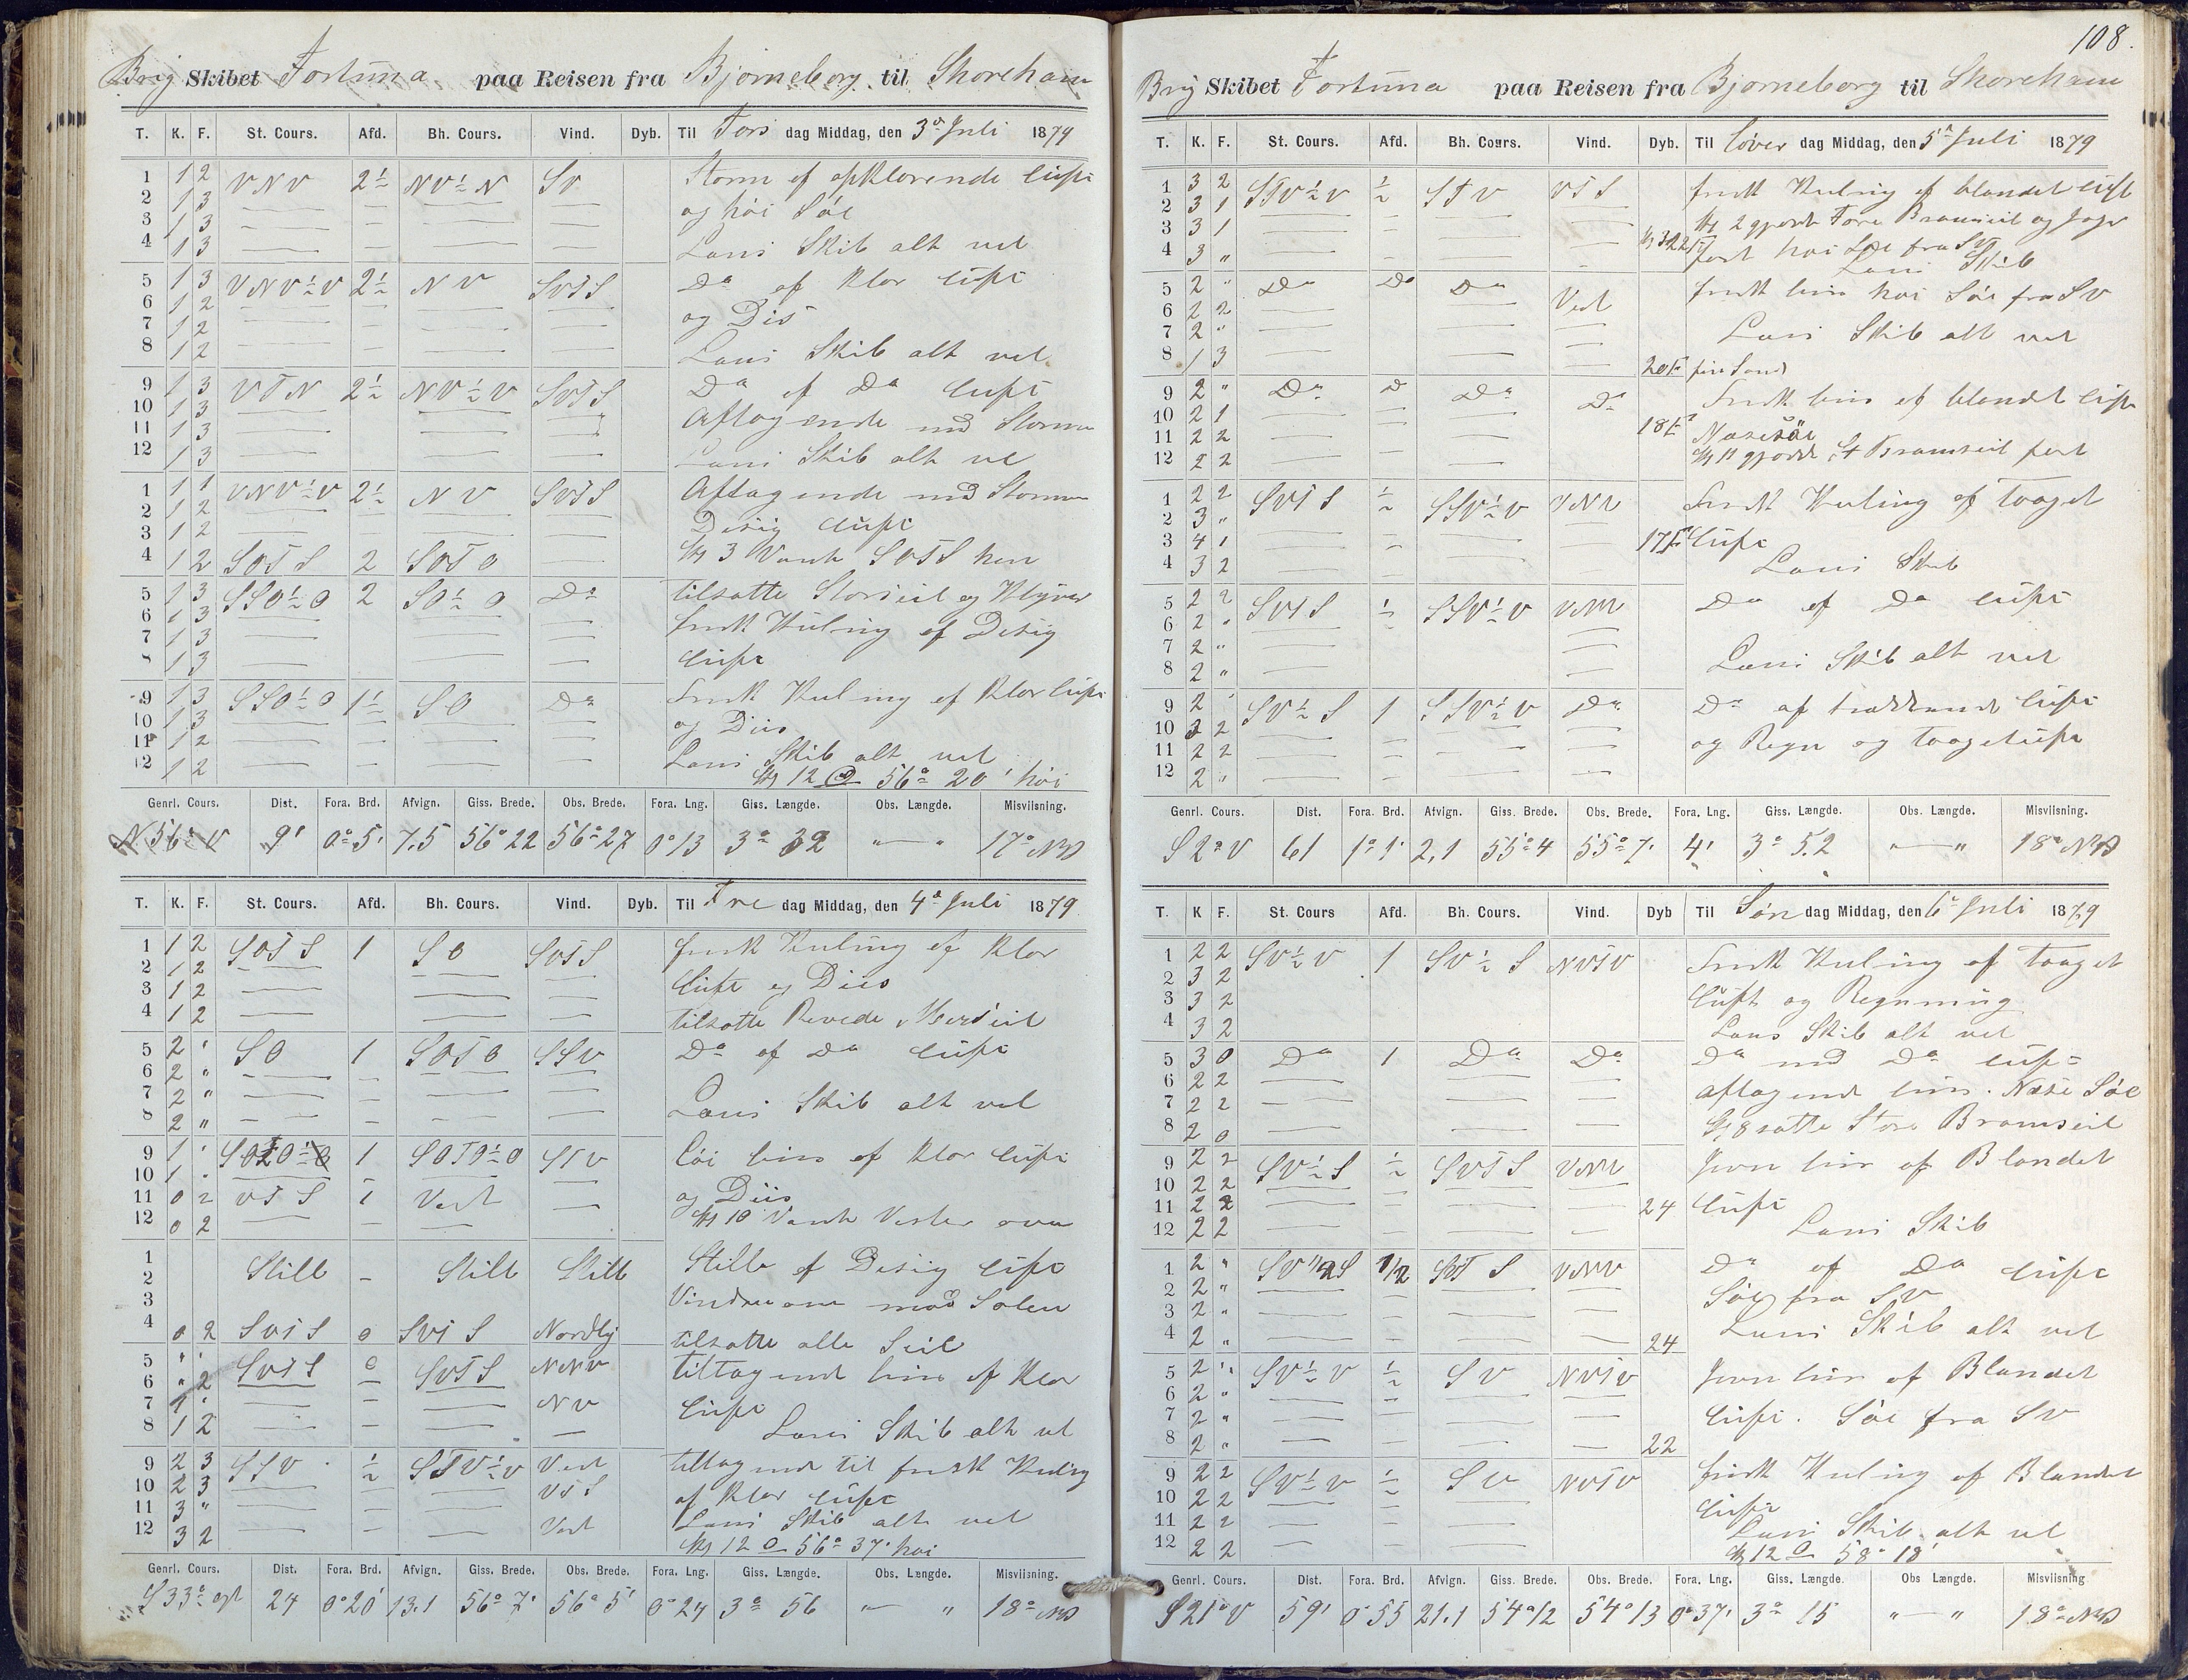 Brig Skibet Fortuna paa Reisen fra Bjorneborg til Shoreham
T. K. F. St. Cours. Afd. Bh. Cours. Vind. Dyb. Til Tors dag Middag, den 3die Juli 1879
1 1 2 VNV 2½ NV½N SV Storm af opklarende Luft
2 1 3 og høi Søe
3 1 3
4 1 3 Lens Skib alt vel
5 1 3 VNV½V 2½ NV SVTS Do af klar Luft
6 1 2 og Dis
7 1 2
8 1 2 Lens Skib alt vel
9 1 3 VTN 2½ NV½V SVTS Do af Do Luft
10 1 3 Aftagende med Stormen
11 1 3
12 1 3 Lens Skib alt vel
1 1 1 VNV½V 2½ NV SVTS Aftagende med Stormen
2 1 2 Desig Luft
3 1 2
4 1 2 SOTS 2 SOTO Kl 3 Vendt SOTS hen
5 1 3 SSO½O 2 SO½O Do tilsatte Storseil og Klyver
6 1 3 frisk Kuling af Desig
7 1 3 Luft
8 1 3
9 1 3 SSO½O 1½ SO Do Frisk Kuling af klar Luft
10 1 3 og Diis
11 1 2 Lens Skib alt vel
12 1 2 Kl 12 56° 20' høi
Genrl. Cours. Dist. Fora. Brd. Afvign. Giss. Brede. Obs. Brede. Fora. Lng. Giss. Længde. Obs. Længde. Misviisning.
N 56° V 9' 0° 5' 7.5 56° 22 56° 27 0° 13 3° 32 " — " 17° NV
T. K. F. St. Cours. Afd. Bh. Cours. Vind. Dyb. Til Fre dag Middag, den 4de Juli 1879
1 1 2 SOTS 1 SO SVTS frisk Kuling af klar
2 1 2 Luft og Diis
3 1 2
4 1 2 tilsatte Revede Merseil
5 2 " SO 1 SOTO SSV Do af Do Luft
6 2 "
7 2 " Lens Skib alt vel
8 2 "
9 1 " 1 SOTO½O STV Løi bris af klar Luft
10 1 " og Diis
11 0 2 VTS 1 Vest Kl 10 Vendt Vester over
12 0 2
1 Still – Still Still Stille af Desig Luft
2
3
4 0 2 SVTS 0 SVTS Nordlig tilsatte alle Seil
5 " " SVTS 0 SVTS NNV tiltagende bris af klar
6 " 2
7 1 " NV Luft
8 1 2 Lens Skib alt vel
9 2 3 SSV ½ STV½V Vest tiltagende til frisk Kuling
10 2 3 VTS af klar Luft
11 3 " Lens Skib alt vel
12 3 2 Vest Kl 12 56° 37' høi
Genrl. Cours. Dist. Fora. Brd. Afvign. Giss. Brede. Obs. Brede. Fora. Lng. Giss. Længde. Obs. Længde. Misviisning.
S 33° ost 24 0° 20' 13.1 56° 7' 56° 5' 0° 24 3° 56 " — " 18° NV
108.
Brig Skibet Fortuna paa Reisen fra Bjorneborg til Shoreham
T. K. F. St. Cours. Afd. Bh. Cours. Vind. Dyb. Til Løver dag Middag, den 5te Juli 1879
1 3 2 STV½V ½ STV VTS frisk Kuling af blandet Luft
2 3 1 Kl 2 gjorde Fore Bramseil og Jager
3 3 1 fast høi Søe fra SV
4 3 " Lens Skib
5 2 " Do Do Do Vest frisk bris høi Søe fra SV
6 2 2
7 2 " Lens Skib alt vel
8 1 3 20 F fin Sand
9 2 " Do Do Do Do Frisk bris af blandet Luft
10 2 1
11 2 2 18 F Næsesøe
12 2 2 Kl 11 gjorde St Bramseil fast
1 2 2 SVTS ½ SSV½V VNV Frisk Kuling af taaget
2 3 "
3 4 1 17 F Luft
4 3 2 Lens Skib
5 2 2 SVTS ½ SSV½V VNV Do af Do Luft
6 2 "
7 2 " Lens Skib alt vel
8 2 "
9 2 " SV½S 1 SSV½V Do Do af Luft
10 2 2
11 2 2 og Regn og taageluft
12 2 "
Genrl. Cours. Dist. Fora. Brd. Afvign. Giss. Brede. Obs. Brede. Fora. Lng. Giss. Længde. Obs. Længde. Misviisning.
S 2° V 61 1° 1' 2,1 55° 4 55° 7' 4' 3° 52 " — " 18° NV
T. K F. St. Cours Afd. Bh. Cours. Vind. Dyb Til Søn dag Middag, den 6te Juli 1879
1 2 2 SV½V 1 SV½S NVTV Frisk Kuling af taaget
2 3 2
3 3 2 Luft og Regnning
4 3 2 Lens Skib alt vel
5 3 0 Do 1 Do Do Do med Do Luft
6 2 2
7 2 2 aftagende bris. Næse Søe
8 2 0 Kl 8 satte Store Bramseil
9 2 2 SV½S ½ SVTS VNV Jevn bris af Blandet
10 2 2
11 2 2 24 Luft
12 2 2 Lens Skib
1 2 " SV½S 1/2 SVTS VNV Do af Do Luft
2 2 " Søe fra SV
3 2 "
4 2 " 24 Lens Skib alt vel
5 2 " SV½V ½ SV NVTV Jevn bris af Blandet
6 2 "
7 2 " Luft. Søe fra SV
8 2 " 22
9 2 2 SV½V ½ SV NVTV frisk Kuling af Blandet
10 2 2 Luft
11 2 2 Lens Skib alt vel
12 2 2 Kl 12 58° 18'
Genrl. Cours. Dist. Fora. Brd. Afvign. Giss. Brede. Obs. Brede. Fora. Lng. Giss. Længde. Obs Længde. Misviisning
S 21° V 59' 0° 55 21.1 54° 12 54° 13 0° 37' 3° 15 " — " 18° NV